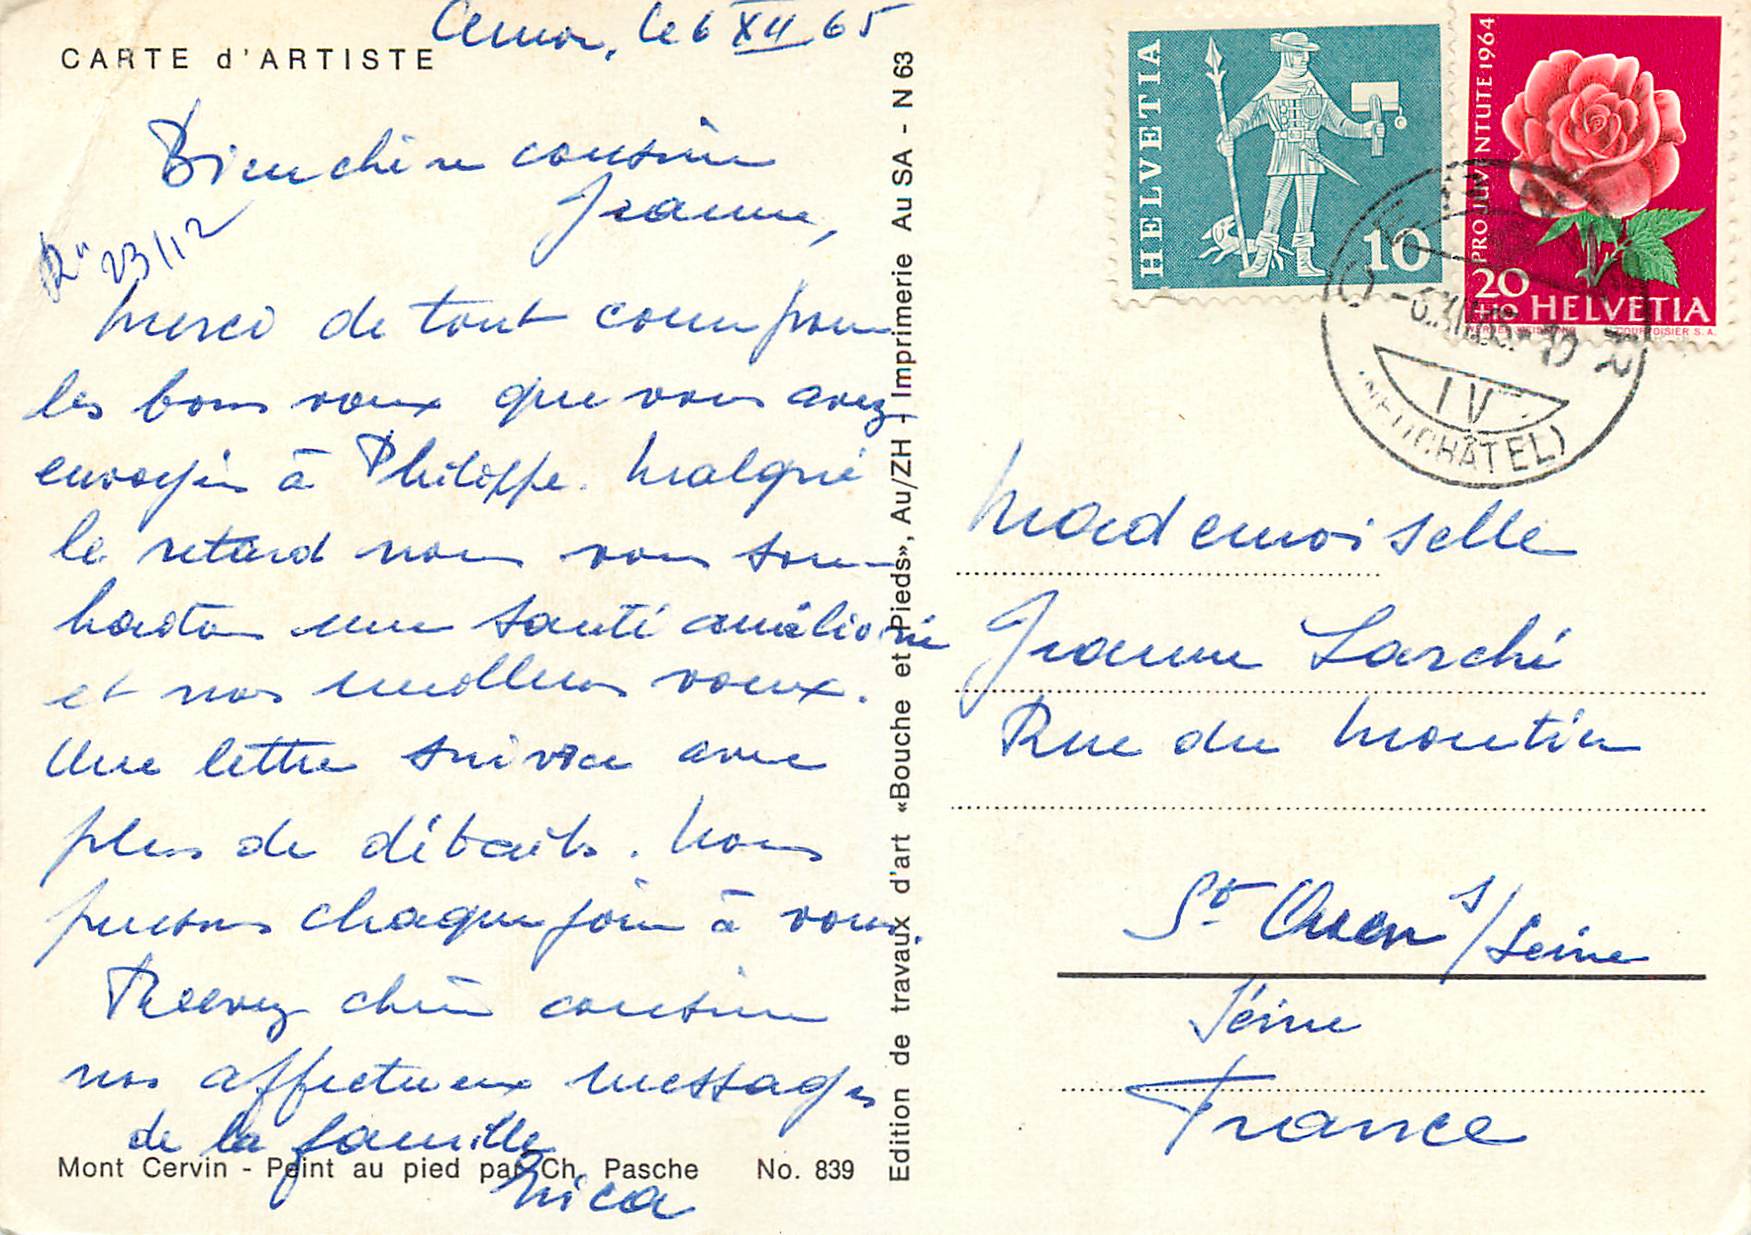 CARTE d'ARTISTE
le 6 XII 65
Bien chère cousine
Jeanne,
23/12
Merci de tout coeur pour
les bons voeux que vous avez
envoyés à Philippe. Malgré
le retard nous vous sou-
haitons une santé améliorée
et nos meilleurs voeux.
Une lettre suivra avec
plus de détails. Nous
pensons chaque jour à vous.
Recevez chère cousine
nos affectueux messages
de la famille
Mont Cervin - Peint au pied par Ch. Pasche No. 839
Edition de travaux d'art «Bouche et Pieds», Au/ZH - Imprimerie Au SA - N 63
HELVETIA
10
PRO JUVENTUTE 1964
20
+10 HELVETIA
COURVOISIER S.A.
IV
(NEUCHÂTEL)
Mademoiselle
Jeanne Larché
Rue du Moutier
St Ouen s/Seine
Seine
France